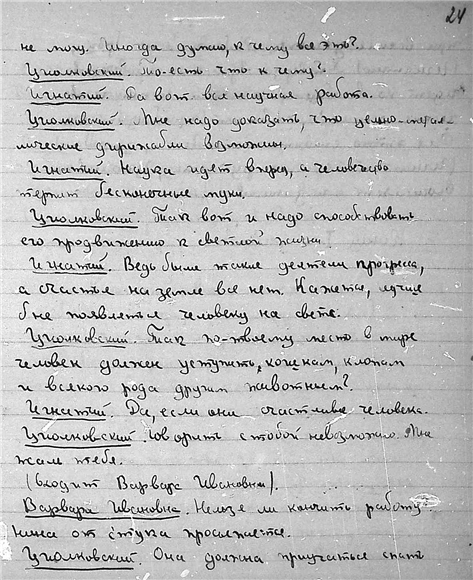 24
не могу. Иногда думаю, к чему все это?.
Циолковский. То-есть что к чему?
Игнатий. Да вот вся научная работа.
Циолковский. Мне надо доказать, что цельно-метал-
лические дирижабли возможны.
Игнатий. Наука идет вперед, а человечество
терпит бесконечные муки.
Циолковский. Так вот и надо способствовать
его продвижению к светлой жизни.
Игнатий. Ведь были такие деятели прогресса,
а счастья на земле все нет. Кажется, лучше
б не появлятся человеку на свете.
Циолковский. Так по-твоему место в мире
человек должен уступить кошкам, клопам
и всякого рода другим животным?.
Игнатий. Да, если они счастливее человека.
Циолковский. Говорить с тобой невозможно. Мне
жаль тебя.
(Входит Варвара Ивановна).
Варвара Ивановна. Нельзя ли кончить работу
от стука просыпается.
Циолковский. Она должна приучаться спать